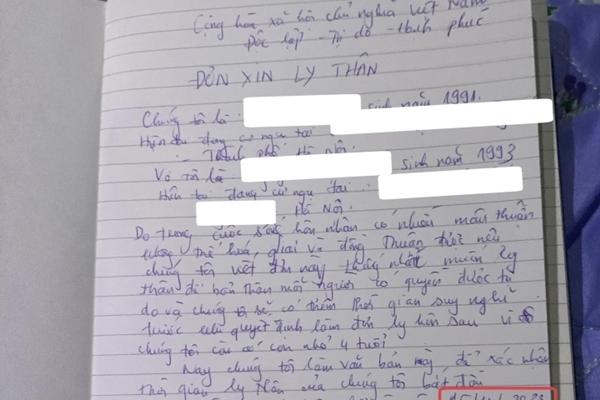 Cộng hòa xã hội chủ nghĩa Việt Nam
Độc lập - Tự do - Hạnh phúc
ĐƠN XIN LY THÂN
Chúng tôi là: sinh năm 1991.
Hiện đang cư ngụ tại
- Thành phố Hà Nội.
Vợ tôi là sinh năm 1993
Hiện tại đang cư ngụ tại:
Hà Nội.
Do trong cuộc sống hôn nhân có nhiều mâu thuẫn
không thể hoá giải và đồng thuận nên
chúng tôi viết đơn này thống nhất muốn ly
thân để bản thân mỗi người có quyền được tự
do và chúng tôi sẽ có thêm thời gian suy nghĩ
trước khi quyết định làm đơn ly hôn sau vì
chúng tôi còn có con nhỏ 4 tuổi
Nay chúng tôi làm văn bản này để xác nhận
thời gian ly thân của chúng tôi bắt đầu